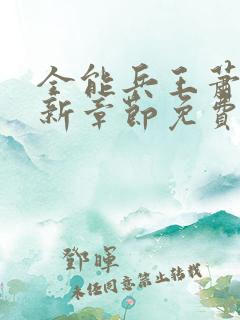 全能兵王蕭
新章節免費
鄧暉
未經同意禁止轉載